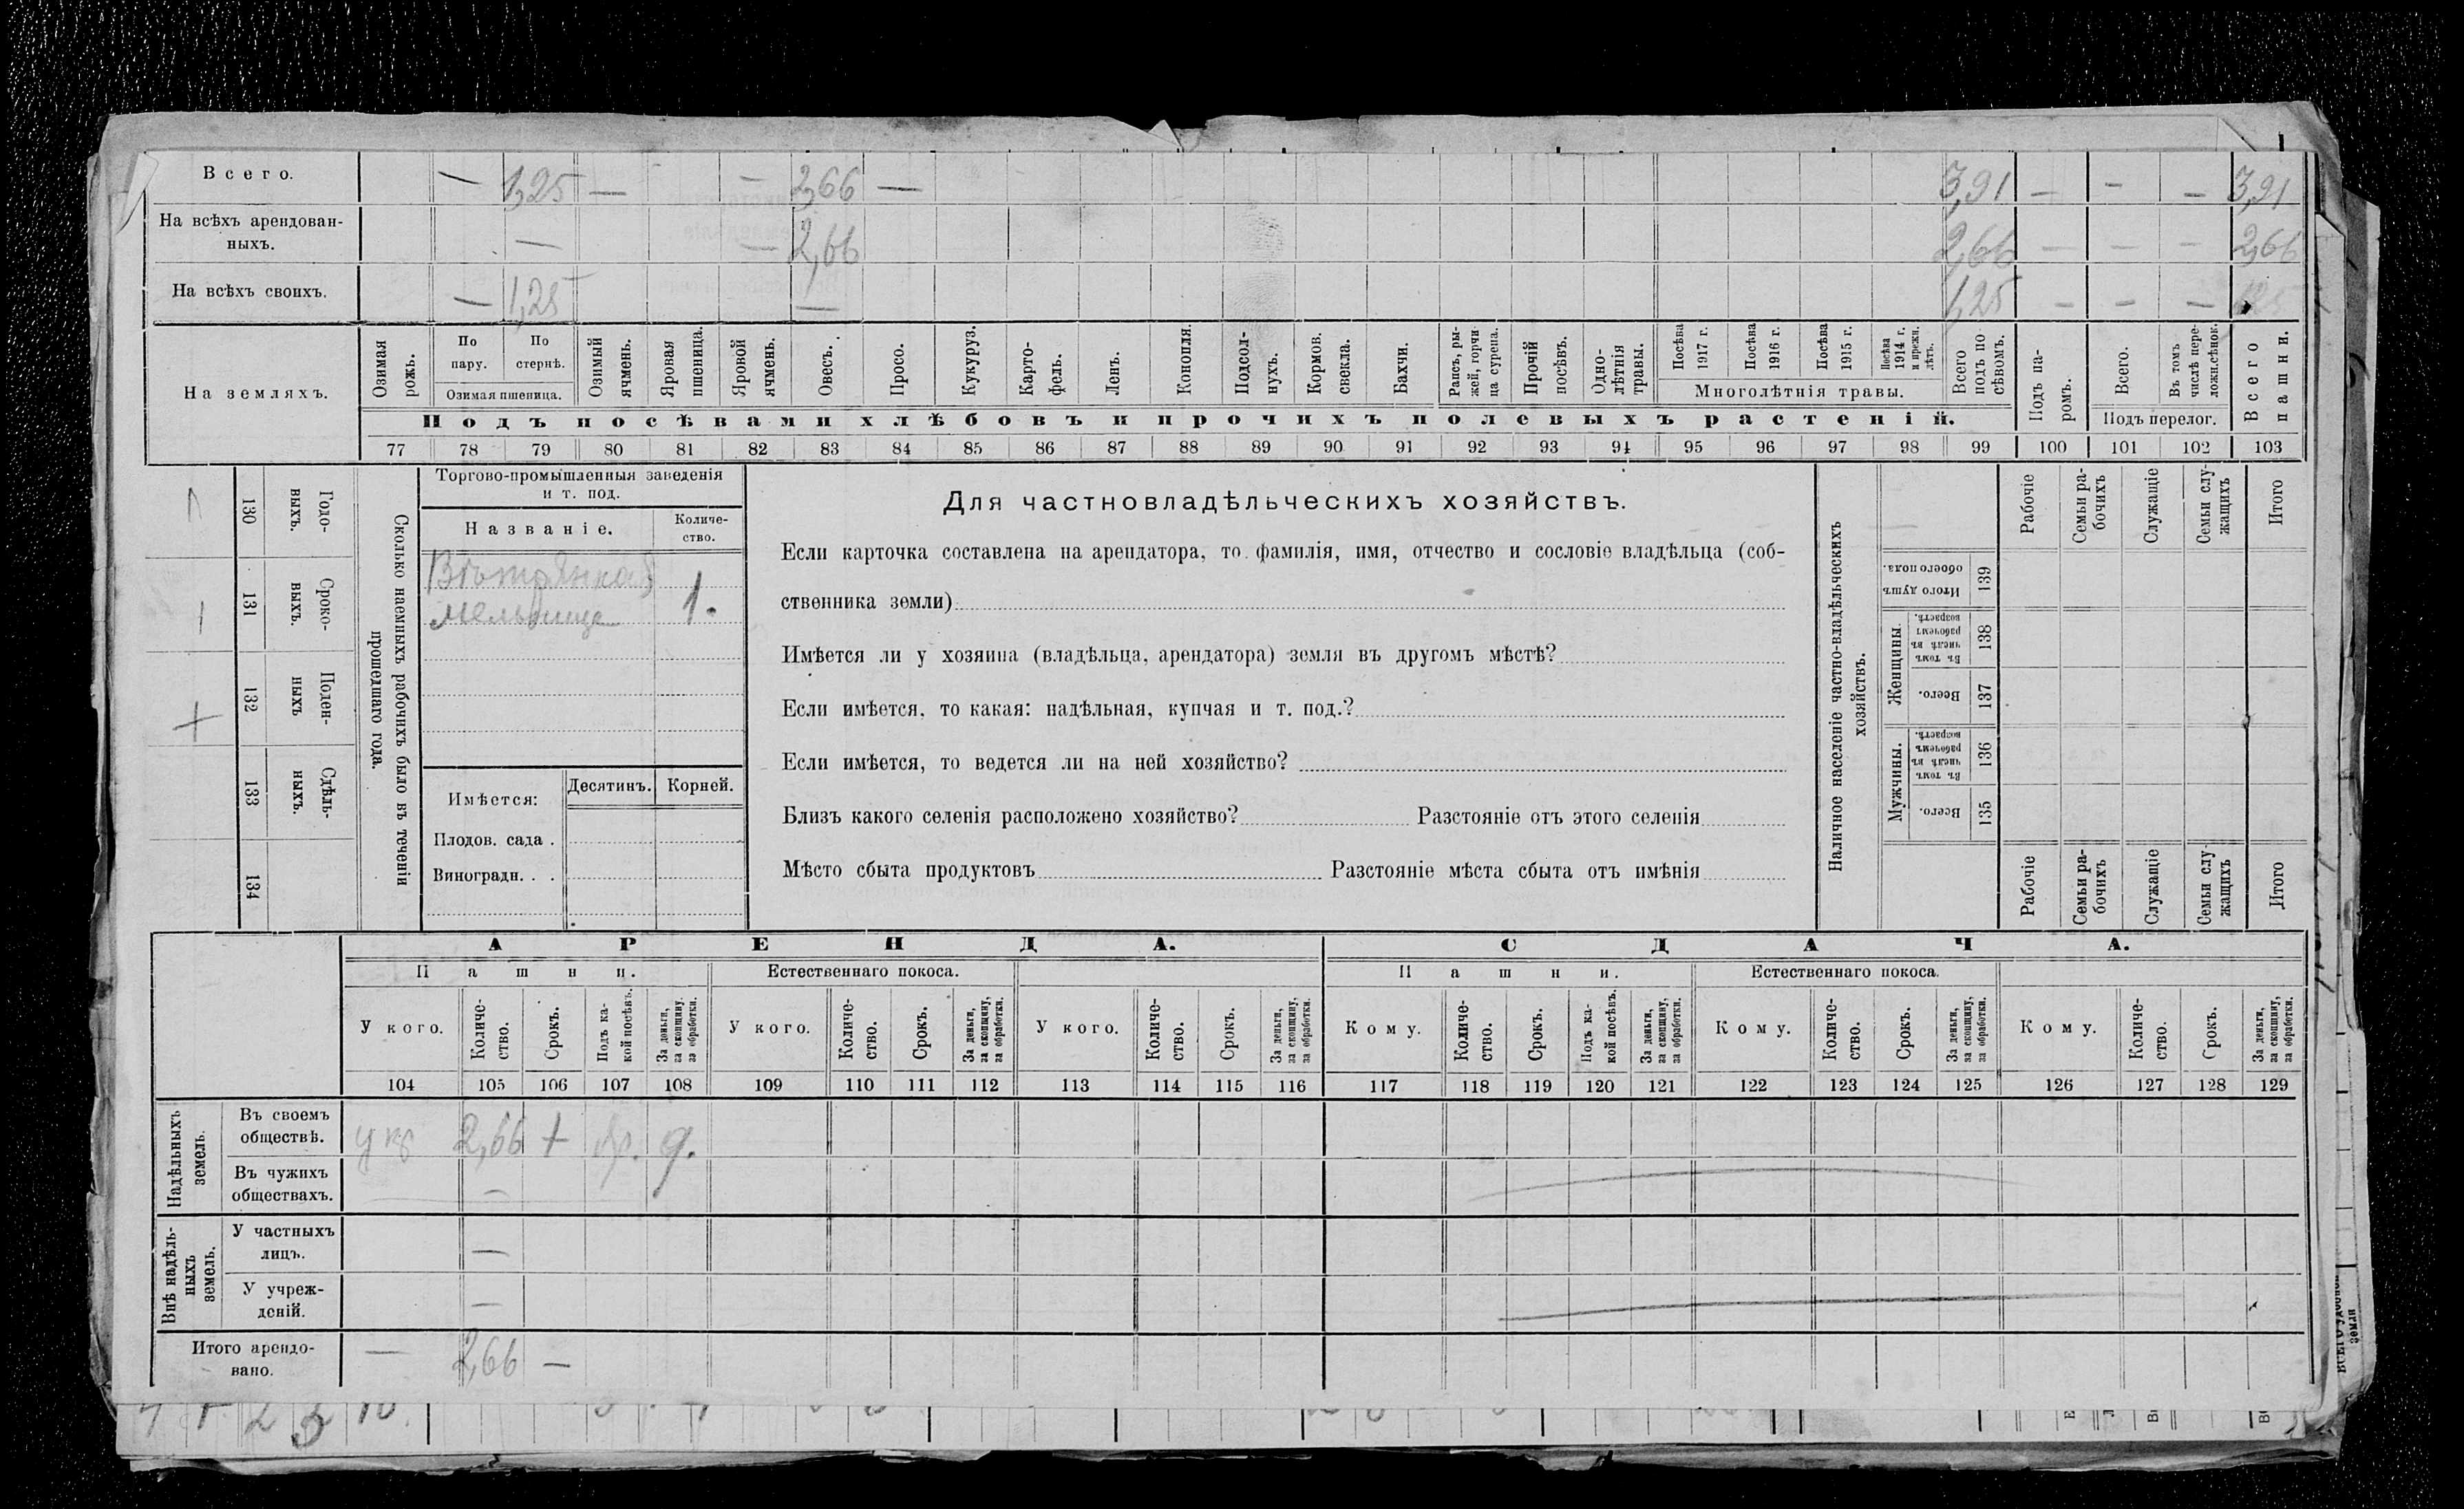 Всего. — 1,25 — — 2,66 — 3,91 — — — 3,91
На всѣхъ арендован-
ныхъ. — — 2,66 2,66 — — — 2,66
На всѣхъ своихъ. — 1,25 — 1,25 — — —
На земляхъ.
Озимая рожь.
По пару.
По стернѣ.
Озимая пшеница.
Озимый ячмень.
Яровая пшеница.
Яровой ячмень.
Овесъ.
Просо.
Кукуруз.
Карто-
фель.
Ленъ.
Конопля.
Подсол-
нухъ.
Кормов.
свекла.
Бахчи.
Рапсъ, ры-
жей, горчи
ца сурепа.
Прочій посѣвъ.
Одно-
лѣтнія травы.
Посѣва 1917 г.
Посѣва 1916 г.
Посѣва 1915 г.
Посѣва 1914 г. и прежн. лѣтъ.
Многолѣтнія травы.
Всего подъ по
сѣвомъ.
Подъ па-
ромъ.
Всего.
Въ томъ числѣ пере-
ложн.сѣнок.
Подъ перелог.
Всего пашни.
Подъ посѣвами хлѣбовъ и прочихъ полевыхъ растеній.
77 78 79 80 81 82 83 84 85 86 87 88 89 90 91 92 93 94 95 96 97 98 99 100 101 102 103
130 Годо-
выхъ.
131 Сроко-
выхъ.
132 Поден-
ныхъ
133 Сдѣль-
ныхъ.
134
Сколько наемныхъ рабочихъ было въ теченіи
прошедшаго года.
Торгово-промышленныя заведенія
и т. под.
Названіе.
Количе-
ство.
мельница 1.
Имѣется:
Десятинъ. Корней.
Плодов. сада .
Виноградн. . .
Для частновладѣльческихъ хозяйствъ.
Если карточка составлена на арендатора, то фамилія, имя, отчество и сословіе владѣльца (соб-
ственника земли)
Имѣется ли у хозяина (владѣльца, арендатора) земля въ другомъ мѣстѣ?
Если имѣется, то какая: надѣльная, купчая и т. под.?
Если имѣется, то ведется ли на ней хозяйство?
Близъ какого селенія расположено хозяйство? Разстояніе отъ этого селенія
Мѣсто сбыта продуктовъ Разстояніе мѣста сбыта отъ имѣнія
Наличное населеніе частно-владѣльческихъ
хозяйствъ.
Рабочіе
Семьи ра-
бочихъ
Служащіе
Семьи слу-
жащихъ
Итого
Итого душъ
обоего пола.
139
Женщины.
Въ томъ числѣ въ рабочемъ возрастѣ.
138
Всего.
137
Мужчины.
Въ томъ числѣ въ рабочемъ возрастѣ.
136
Всего.
135
Рабочіе
Семьи ра-
бочихъ
Служащіе
Семьи слу-
жащихъ
Итого
АРЕНДА. СДАЧА.
Пашни. Естественнаго покоса. Пашни. Естественнаго покоса.
У кого.
Количе-
ство.
Срокъ.
Подъ ка-
кой посѣвъ.
За деньги,
за скопщину,
за обработки.
У кого.
Количе-
ство.
Срокъ.
За деньги,
за скопщину,
за обработки.
У кого.
Количе-
ство.
Срокъ.
За деньги,
за скопщину,
за обработки.
Кому.
Количе-
ство.
Срокъ.
Подъ ка-
кой посѣвъ.
За деньги,
за скопщину,
за обработки.
Кому.
Количе-
ство.
Срокъ.
За деньги,
за скопщину,
за обработки.
Кому.
Количе-
ство.
Срокъ.
За деньги,
за скопщину,
за обработки.
104 105 106 107 108 109 110 111 112 113 114 115 116 117 118 119 120 121 122 123 124 125 126 127 128 129
Надѣльныхъ
земель.
Въ своемъ
обществѣ. 2,66
Въ чужихъ
обществахъ. —
Внѣ надѣль-
ныхъ
земель.
У частныхъ
лицъ. —
У учреж-
деній. —
Итого арендо-
вано. — 2,66 —